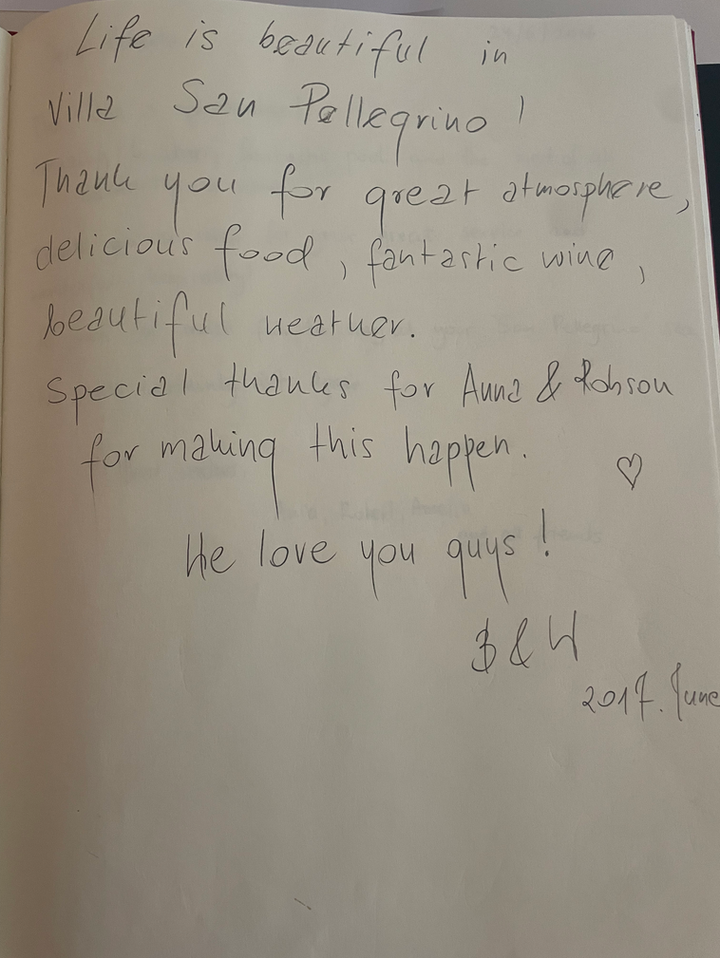 Life is beautiful in
Villa San Pellegrino!
Thank you for great atmosphere,
delicious food, fantastic wine,
beautiful weather.
Special thanks for Anna & Robson
for making this happen.
♡
We love you guys!
B & W
2017. June